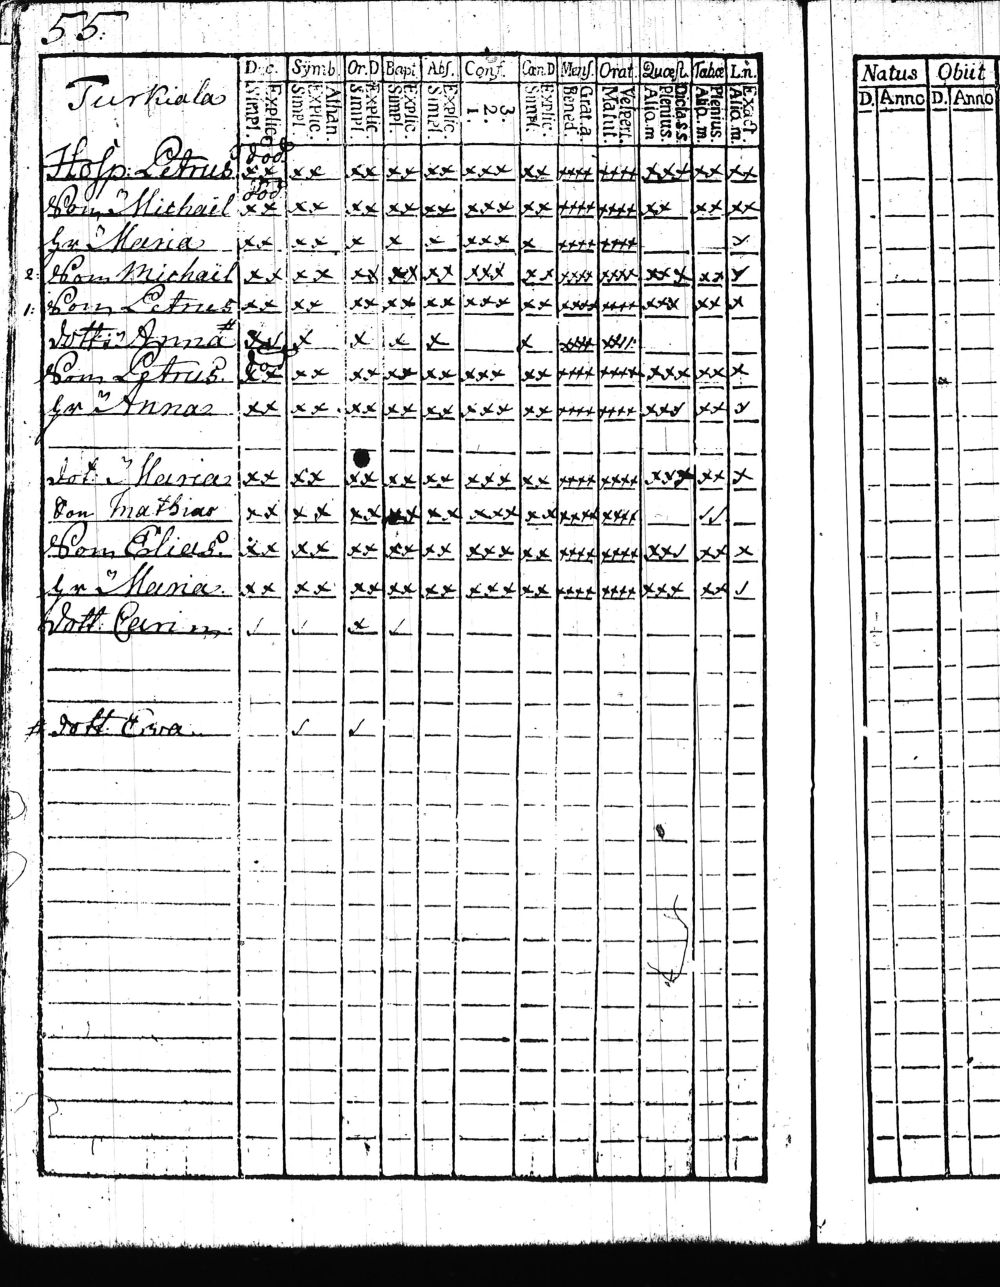 55.
Turkiala
D.c. Symb. Or.D Bapt Abs. Conf. Cœn.D Mens. Orat. Quæst. Tabæ L.n.
Explic. Simpl. Athan. Explic. Simpl. Explic. Simpl. Explic. Simpl. Explic. Simpl. 3 2. 1. Explic. Simpl. Grat. a. Bened. Vesperi. Matut. Dicta s s. Plenius. Aliq.m Plenius. Aliq.m. Exact Aliq.m.
Natus Obiit
D. Anno D. Anno
Hosp: Petrus död. xx xx xx xx xx xxx xx xxxx xxxx xxx xx xx
Son Michaël död. xx xx xx xx xx xxx xx xxxx xxxx xx xx xx
hr Maria xx xx x x x xxx x xxxx xxxx x
2: Son Michaël xx xx xx xx xx xxx xx xxxx xxxx xxx xx x
1: Son Petrus xx xx xx xx xx xxx xx xxxx xxxx xxx xx x
dott: Anna #
Son Petrus xx xx xx xx xxx xx xxxx xxxx xxx xx x
hr Anna xx xx xx xx xx xxx xx xxxx xxxx xxx xx x
dot: Maria xx xx xx xx xx xxx xx xxxx xxxx xxx xx x
Son Mathias xx xx xx xx xx xxx xx xxxx xxxx
Son Elias xx xx xx xx xx xxx xx xxxx xxxx xxx xx x
hr Maria xx xx xx xx xx xxx xx xxxx xxxx xxx xx
dott. Carin
# dott. Ewa